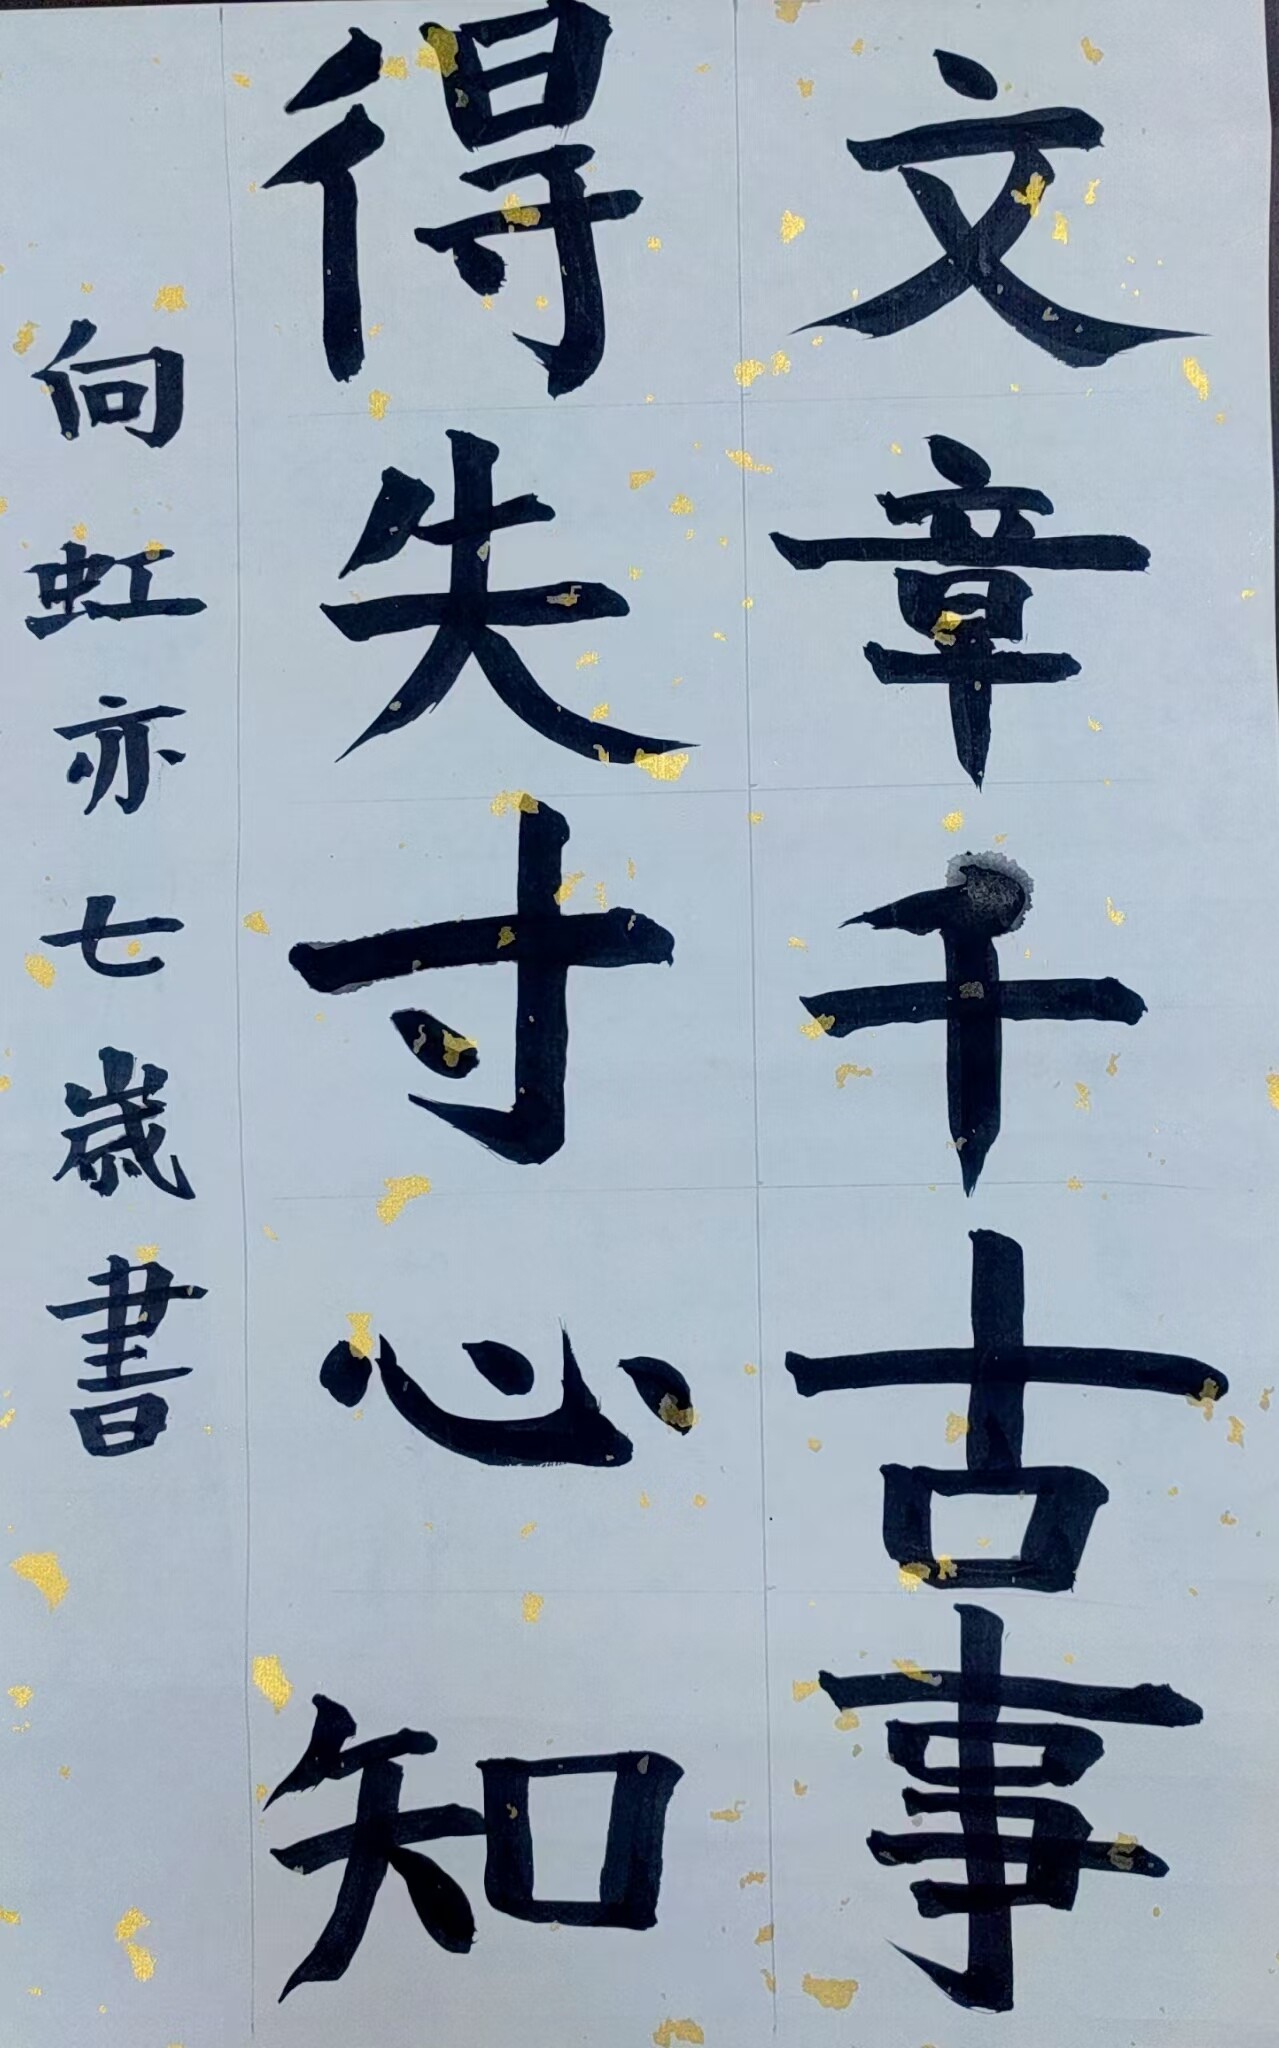 文章千古事
得失寸心知
向虹亦七歳書